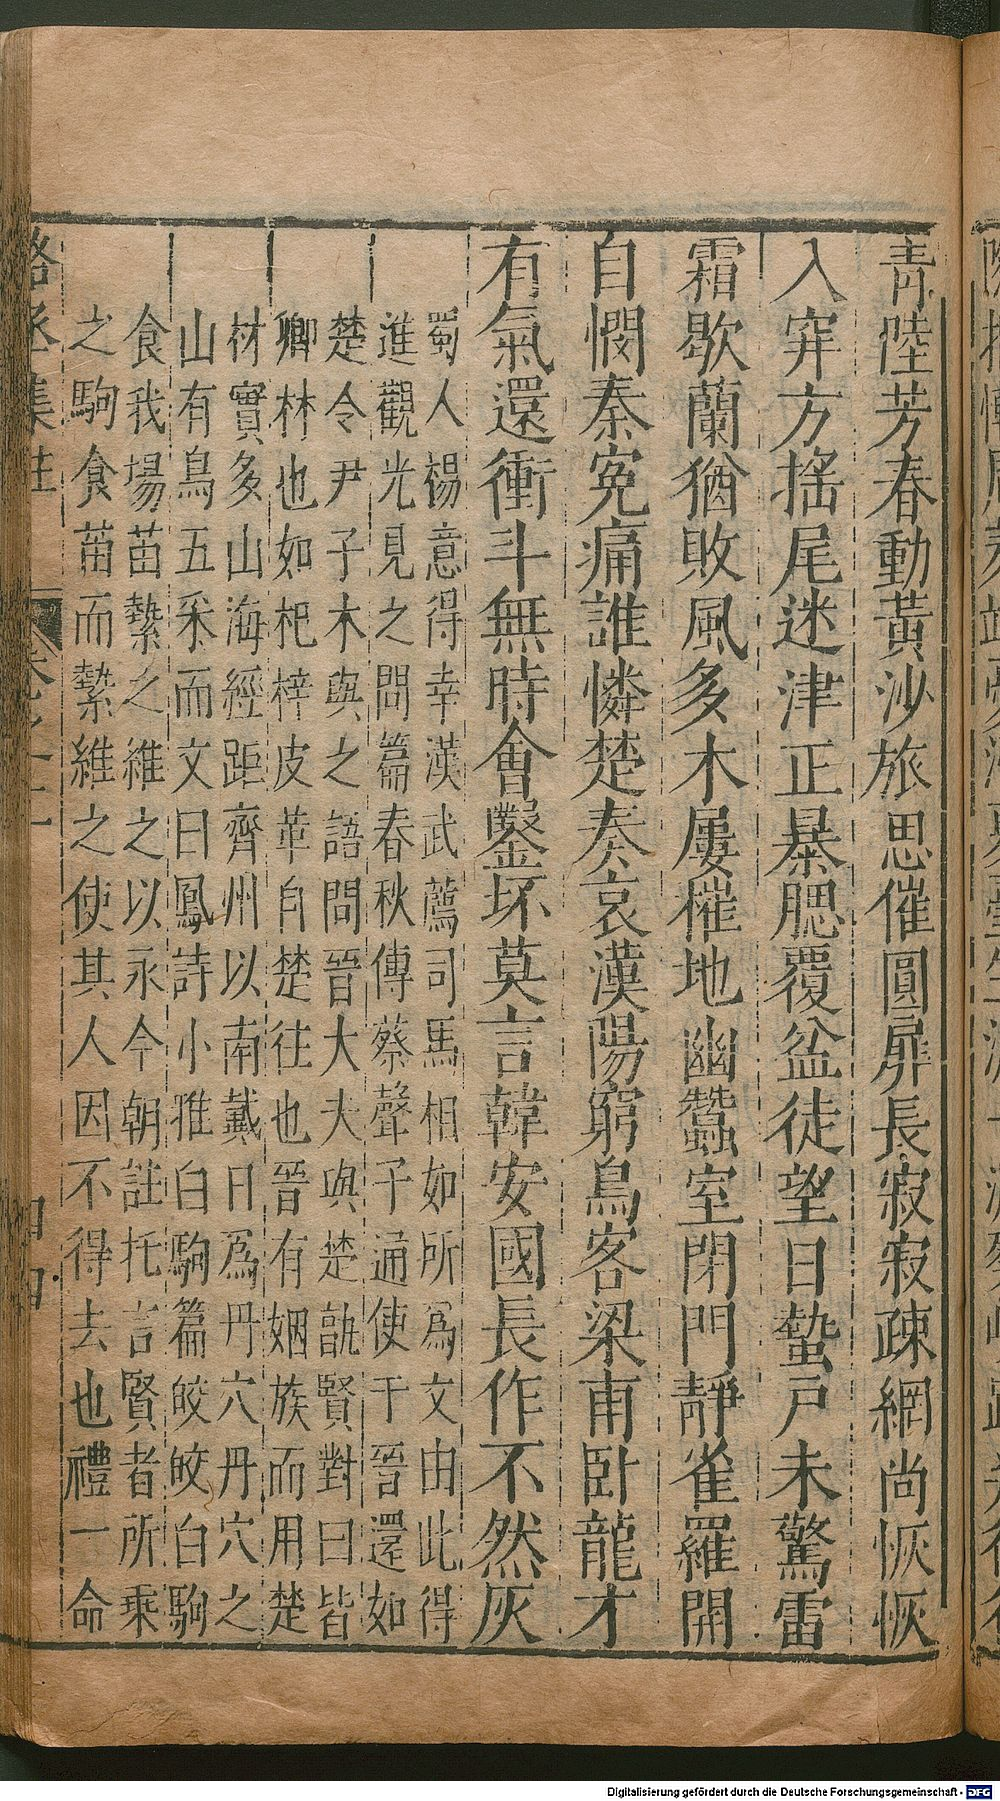 青陸芳春動黃沙旅思催圓扉長寂寂疎網尚恢恢
入穽方搖尾迷津正暴腮覆盆徒望日蟄戶未驚雷
霜歇蘭猶敗風多木屢摧地幽蠶室閉門靜雀羅開
自憫秦冤痛誰憐楚奏哀漢陽窮鳥客梁甫臥龍才
有氣還衝斗無時會鑿坏莫言韓安國長作不然灰
蜀人楊意得幸漢武薦司馬相如所爲文由此得
進觀光見之問篇春秋傳蔡聲子通使于晉還如
楚令尹子木與之語問晉大夫與楚孰賢對曰皆
卿林也如杞梓皮革自楚往也晉有姻族而用楚
材實多山海經距齊州以南戴日爲丹穴丹穴之
山有鳥五采而文曰鳳詩小雅白駒篇皎皎白駒
食我場苗縶之維之以永今朝註托言賢者所乘
之駒食苗而縶維之使其人因不得去也禮一命
Digitalisierung gefördert durch die Deutsche Forschungsgemeinschaft - DFG